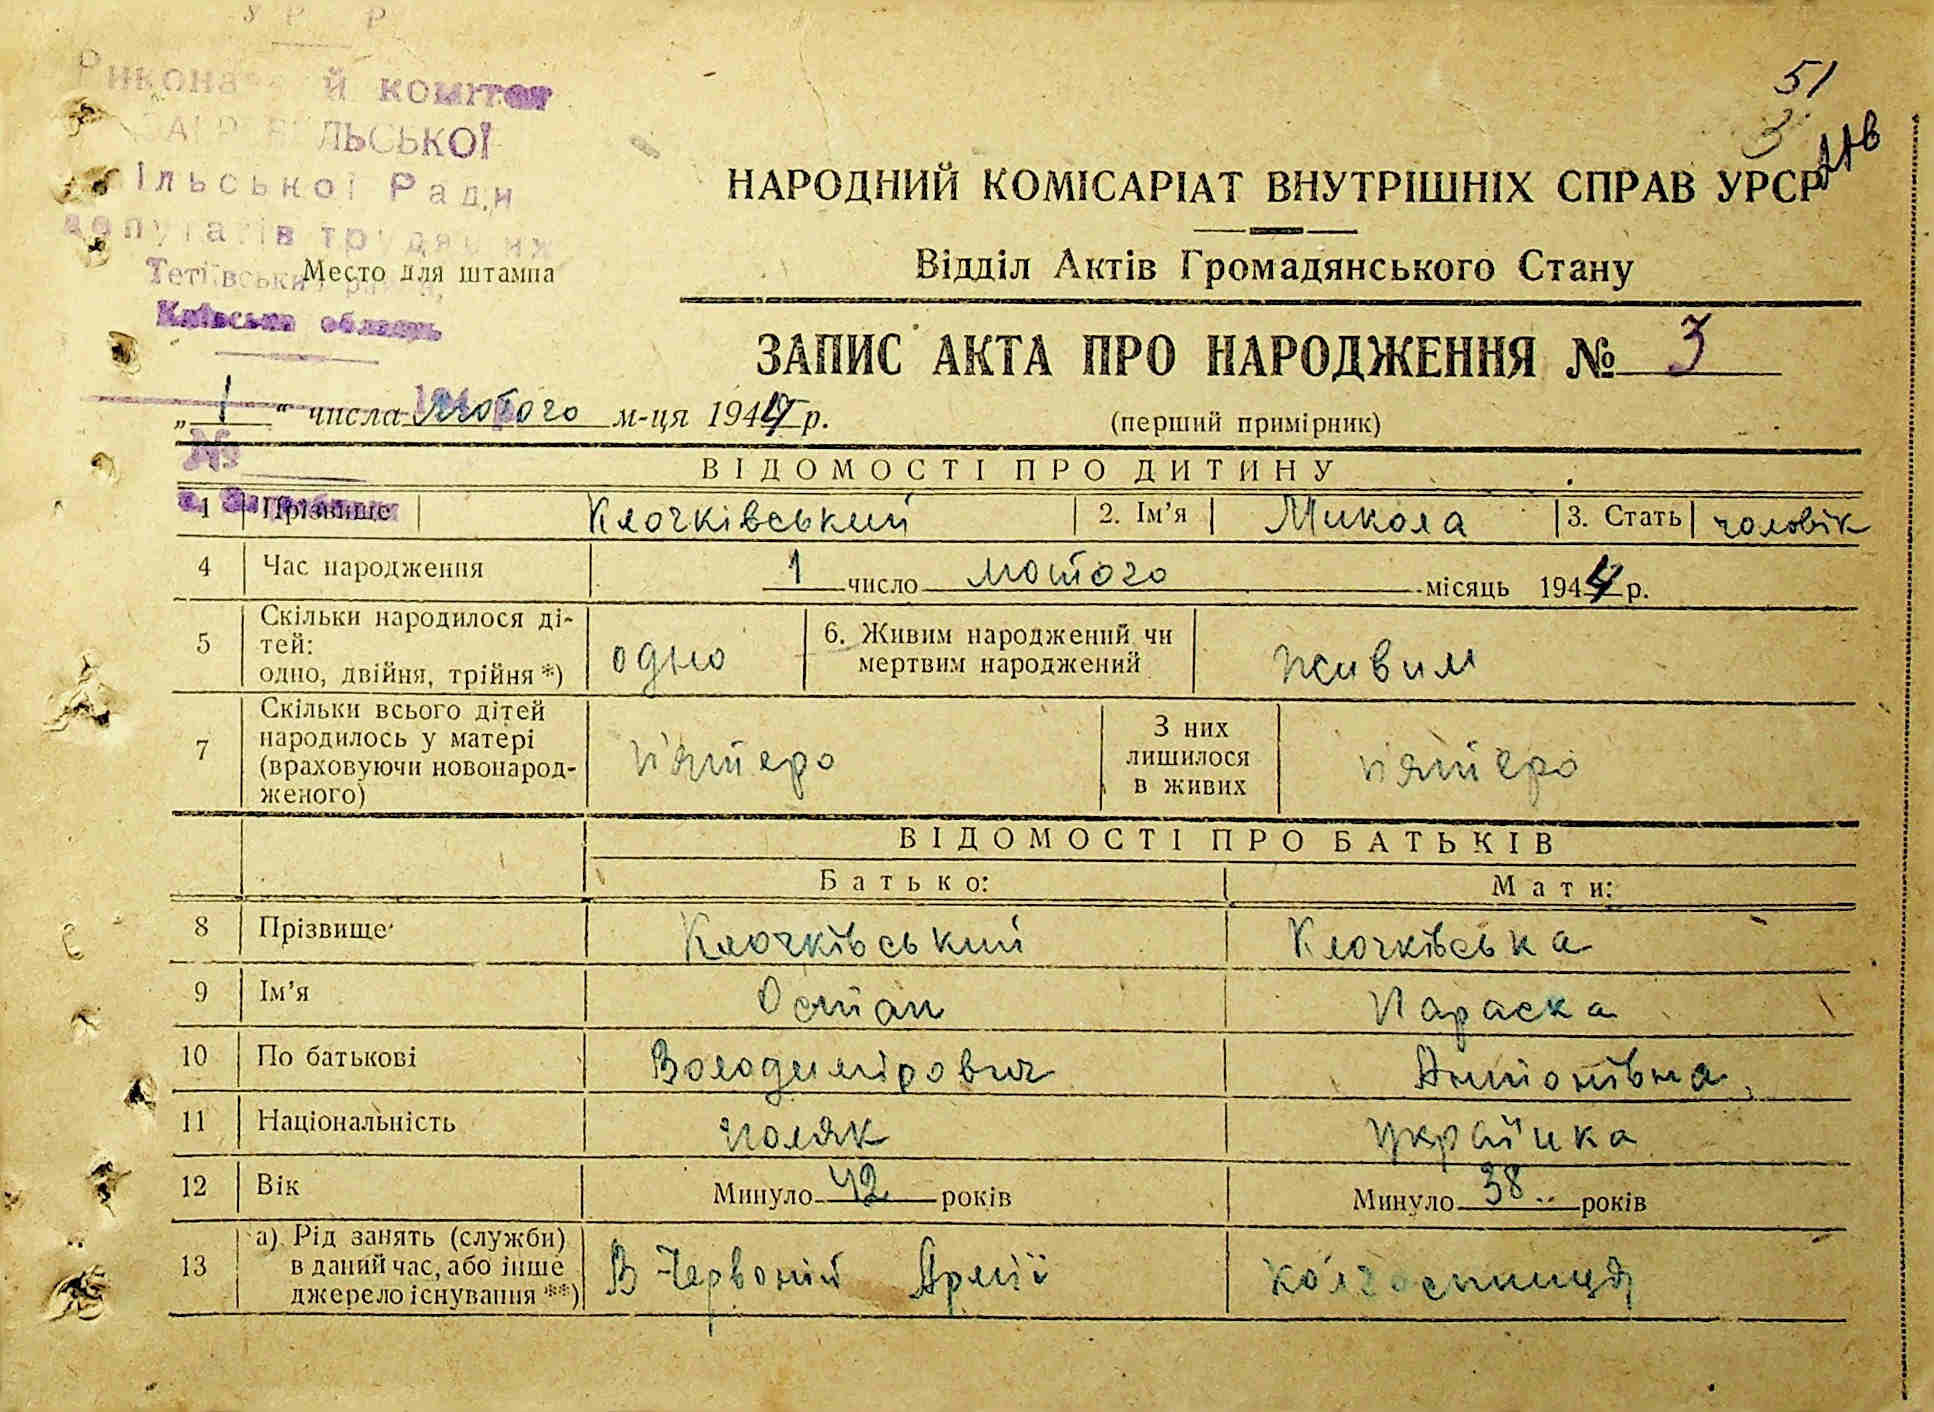 У Р Р
й комітет
ЛЬСЬКОЇ
ільської Ради
депутатів трудящих
Тетіївськ
Київська область
Место для штампа
№
51
3
НАРОДНИЙ КОМІСАРІАТ ВНУТРІШНІХ СПРАВ УРСР
Відділ Актів Громадянського Стану
ЗАПИС АКТА ПРО НАРОДЖЕННЯ № 3
(перший примірник)
„ 1 “ числа лютого м-ця 1944 р.
ВІДОМОСТІ ПРО ДИТИНУ
1 Прізвище Клочківський 2. Ім’я Микола 3. Стать чоловік
4 Час народження 1 число лютого місяць 1944 р.
5 Скільки народилося ді-
тей:
одно, двійня, трійня *) одно
6. Живим народжений чи
мертвим народжений живим
7 Скільки всього дітей
народилось у матері
(враховуючи новонарод-
женого) п'ятеро
З них
лишилося
в живих п'ятеро
ВІДОМОСТІ ПРО БАТЬКІВ
Батько: Мати:
8 Прізвище Клочківський Клочківська
9 Ім’я Остап Параска
10 По батькові Володимірович Антонівна
11 Національність поляк українка
12 Вік Минуло 42 років Минуло 38 років
13 а) Рід занять (служби)
в даний час, або інше
джерело існування **) В Червоній Армії колгоспниця